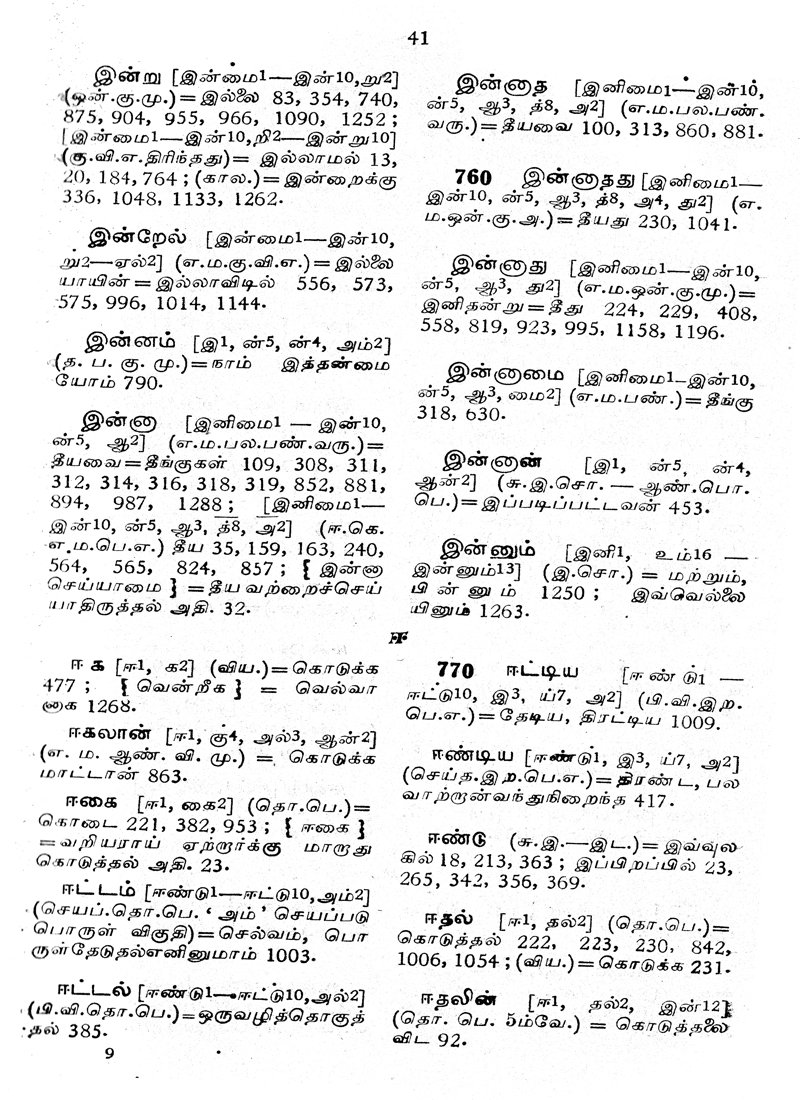 41
இன்று [இன்மை1—இன்10,று2]
(ஒன்.கு.மு.)=இல்லை 83, 354, 740,
875, 904, 955, 966, 1090, 1252;
[இன்மை1—இன்10,றி2—இன்று10]
(கு.வி.எ.திரிந்தது)= இல்லாமல் 13,
20, 184, 764; (கால.)=இன்றைக்கு
336, 1048, 1133, 1262.
இன்றேல் [இன்மை1—இன்10,
று2—ஏல்2] (எ.ம.கு.வி.எ.)=இல்லை
யாயின்=இல்லாவிடில் 556, 573,
575, 996, 1014, 1144.
இன்னம் [இ1, ன்5, ன்4, அம்2]
(த. ப. கு. மு.)=நாம் இத்தன்மை
யோம் 790.
இன்னா [இனிமை1 — இன்10,
ன்5, ஆ2] (எ.ம.பல.பண்.வரு.)=
தீயவை=தீங்குகள் 109, 308, 311,
312, 314, 316, 318, 319, 852, 881,
894, 987, 1288; [இனிமை1—
இன்10, ன்5, ஆ3, த்8, அ2] (ஈ.கெ.
எ.ம.பெ.எ.) தீய 35, 159, 163, 240,
564, 565, 824, 857; { இன்னா
செய்யாமை } =தீய வற்றைச்செய்
யாதிருத்தல் அதி. 32.
இன்னாத [இனிமை1—இன்10,
ன்5, ஆ3, த்8, அ2] (எ.ம.பல.பண்.
வரு.)=தீயவை 100, 313, 860, 881.
760 இன்னாதது [இனிமை1—
இன்10, ன்5, ஆ3, த்8, அ4, து2] (எ.
ம.ஒன்.கு.அ.)=தீயது 230, 1041.
இன்னாது [இனிமை1—இன்10,
ன்5, ஆ3, து2] (எ.ம.ஒன்.கு.மு.)=
இனிதன்று=தீது 224, 229, 408,
558, 819, 923, 995, 1158, 1196.
இன்னாமை [இனிமை1—இன்10,
ன்5, ஆ3, மை2] (எ.ம.பண்.)=தீங்கு
318, 630.
இன்னான் [இ1, ன்5, ன்4,
ஆன்2] (சு.இ.சொ. — ஆண்.பொ.
பெ.)=இப்படிப்பட்டவன் 453.
இன்னும் [இனி1, உம்16 —
இன்னும்13] (இ.சொ.) = மற்றும்,
பின்னும் 1250; இவ்வெல்லை
யினும் 1263.
ஈ
ஈக [ஈ1, க2] (விய.)=கொடுக்க
477; { வென்றீக } = வெல்வா
னாக 1268.
ஈகலான் [ஈ1, கு4, அல்3, ஆன்2]
(எ. ம. ஆண். வி. மு.) = கொடுக்க
மாட்டான் 863.
ஈகை [ஈ1, கை2] (தொ.பெ.)=
கொடை 221, 382, 953; { ஈகை }
=வறியராய் ஏற்றார்க்கு மாறாது
கொடுத்தல் அதி. 23.
ஈட்டம் [ஈண்டு1—ஈட்டு10,அம்2]
(செயப்.தொ.பெ. ‘ அம் ’ செயப்படு
பொருள் விகுதி)=செல்வம், பொ
ருள்தேடுதல்எனினுமாம் 1003.
ஈட்டல் [ஈண்டு1—ஈட்டு10,அல்2]
(பி.வி.தொ.பெ.)=ஒருவழித்தொகுத்
தல் 385.
770 ஈட்டிய [ஈண்டு1 —
ஈட்டு10, இ3, ய்7, அ2] (பி.வி.இற.
பெ.எ.)=தேடிய, திரட்டிய 1009.
ஈண்டிய [ஈண்டு1, இ3, ய்7, அ2]
(செய்த.இற.பெ.எ.)=திரண்ட, பல
வாற்றான்வந்துநிறைந்த 417.
ஈண்டு (சு.இ.—இட.)=இவ்வுல
கில் 18, 213, 363; இப்பிறப்பில் 23,
265, 342, 356, 369.
ஈதல் [ஈ1, தல்2] (தொ.பெ.)=
கொடுத்தல் 222, 223, 230, 842,
1006, 1054; (விய.)=கொடுக்க 231.
ஈதலின் [ஈ1, தல்2, இன்12]
(தொ. பெ. 5ம்வே.) = கொடுத்தலை
விட 92.
9